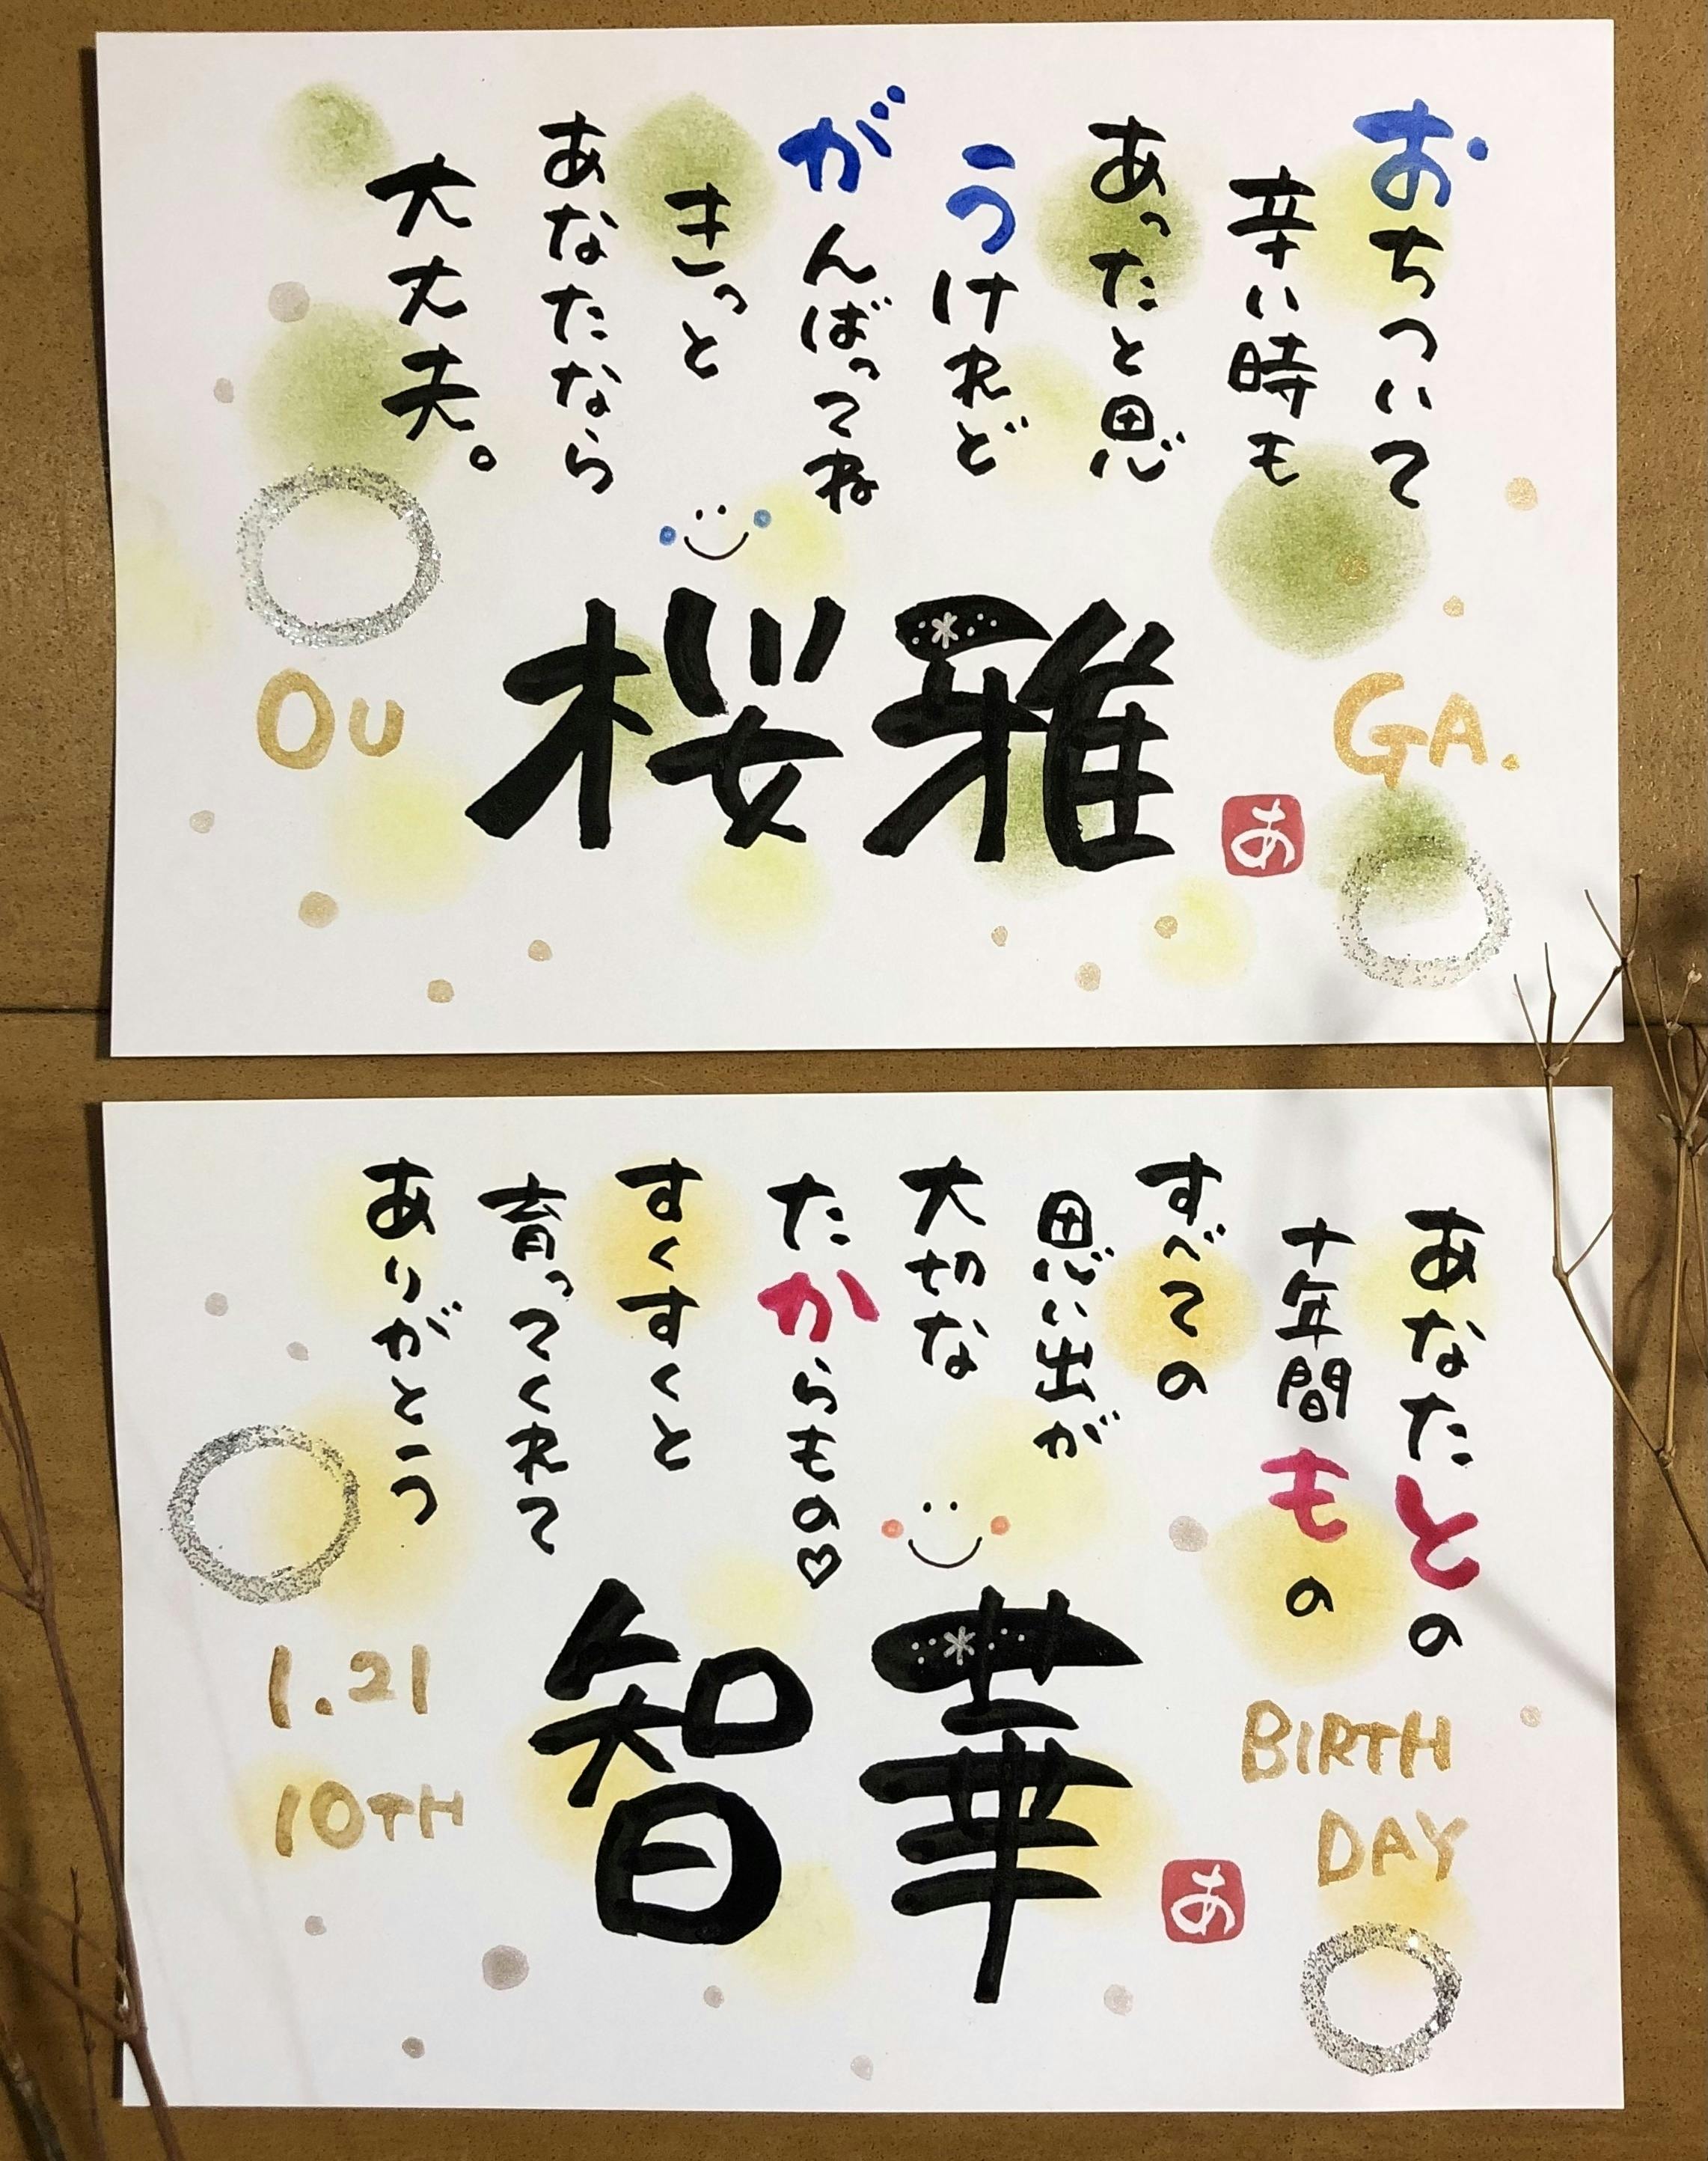 おちついて
辛い時も
あったと思
うけれど
がんばってね
きっと
あなたなら
大丈夫。
桜雅
OU
GA.
あ
あなたとの
十年間もの
すべての
思い出が
大切な
たからもの♡
すくすくと
育ってくれて
ありがとう
智華
1.21
10TH
BIRTH
DAY
あ